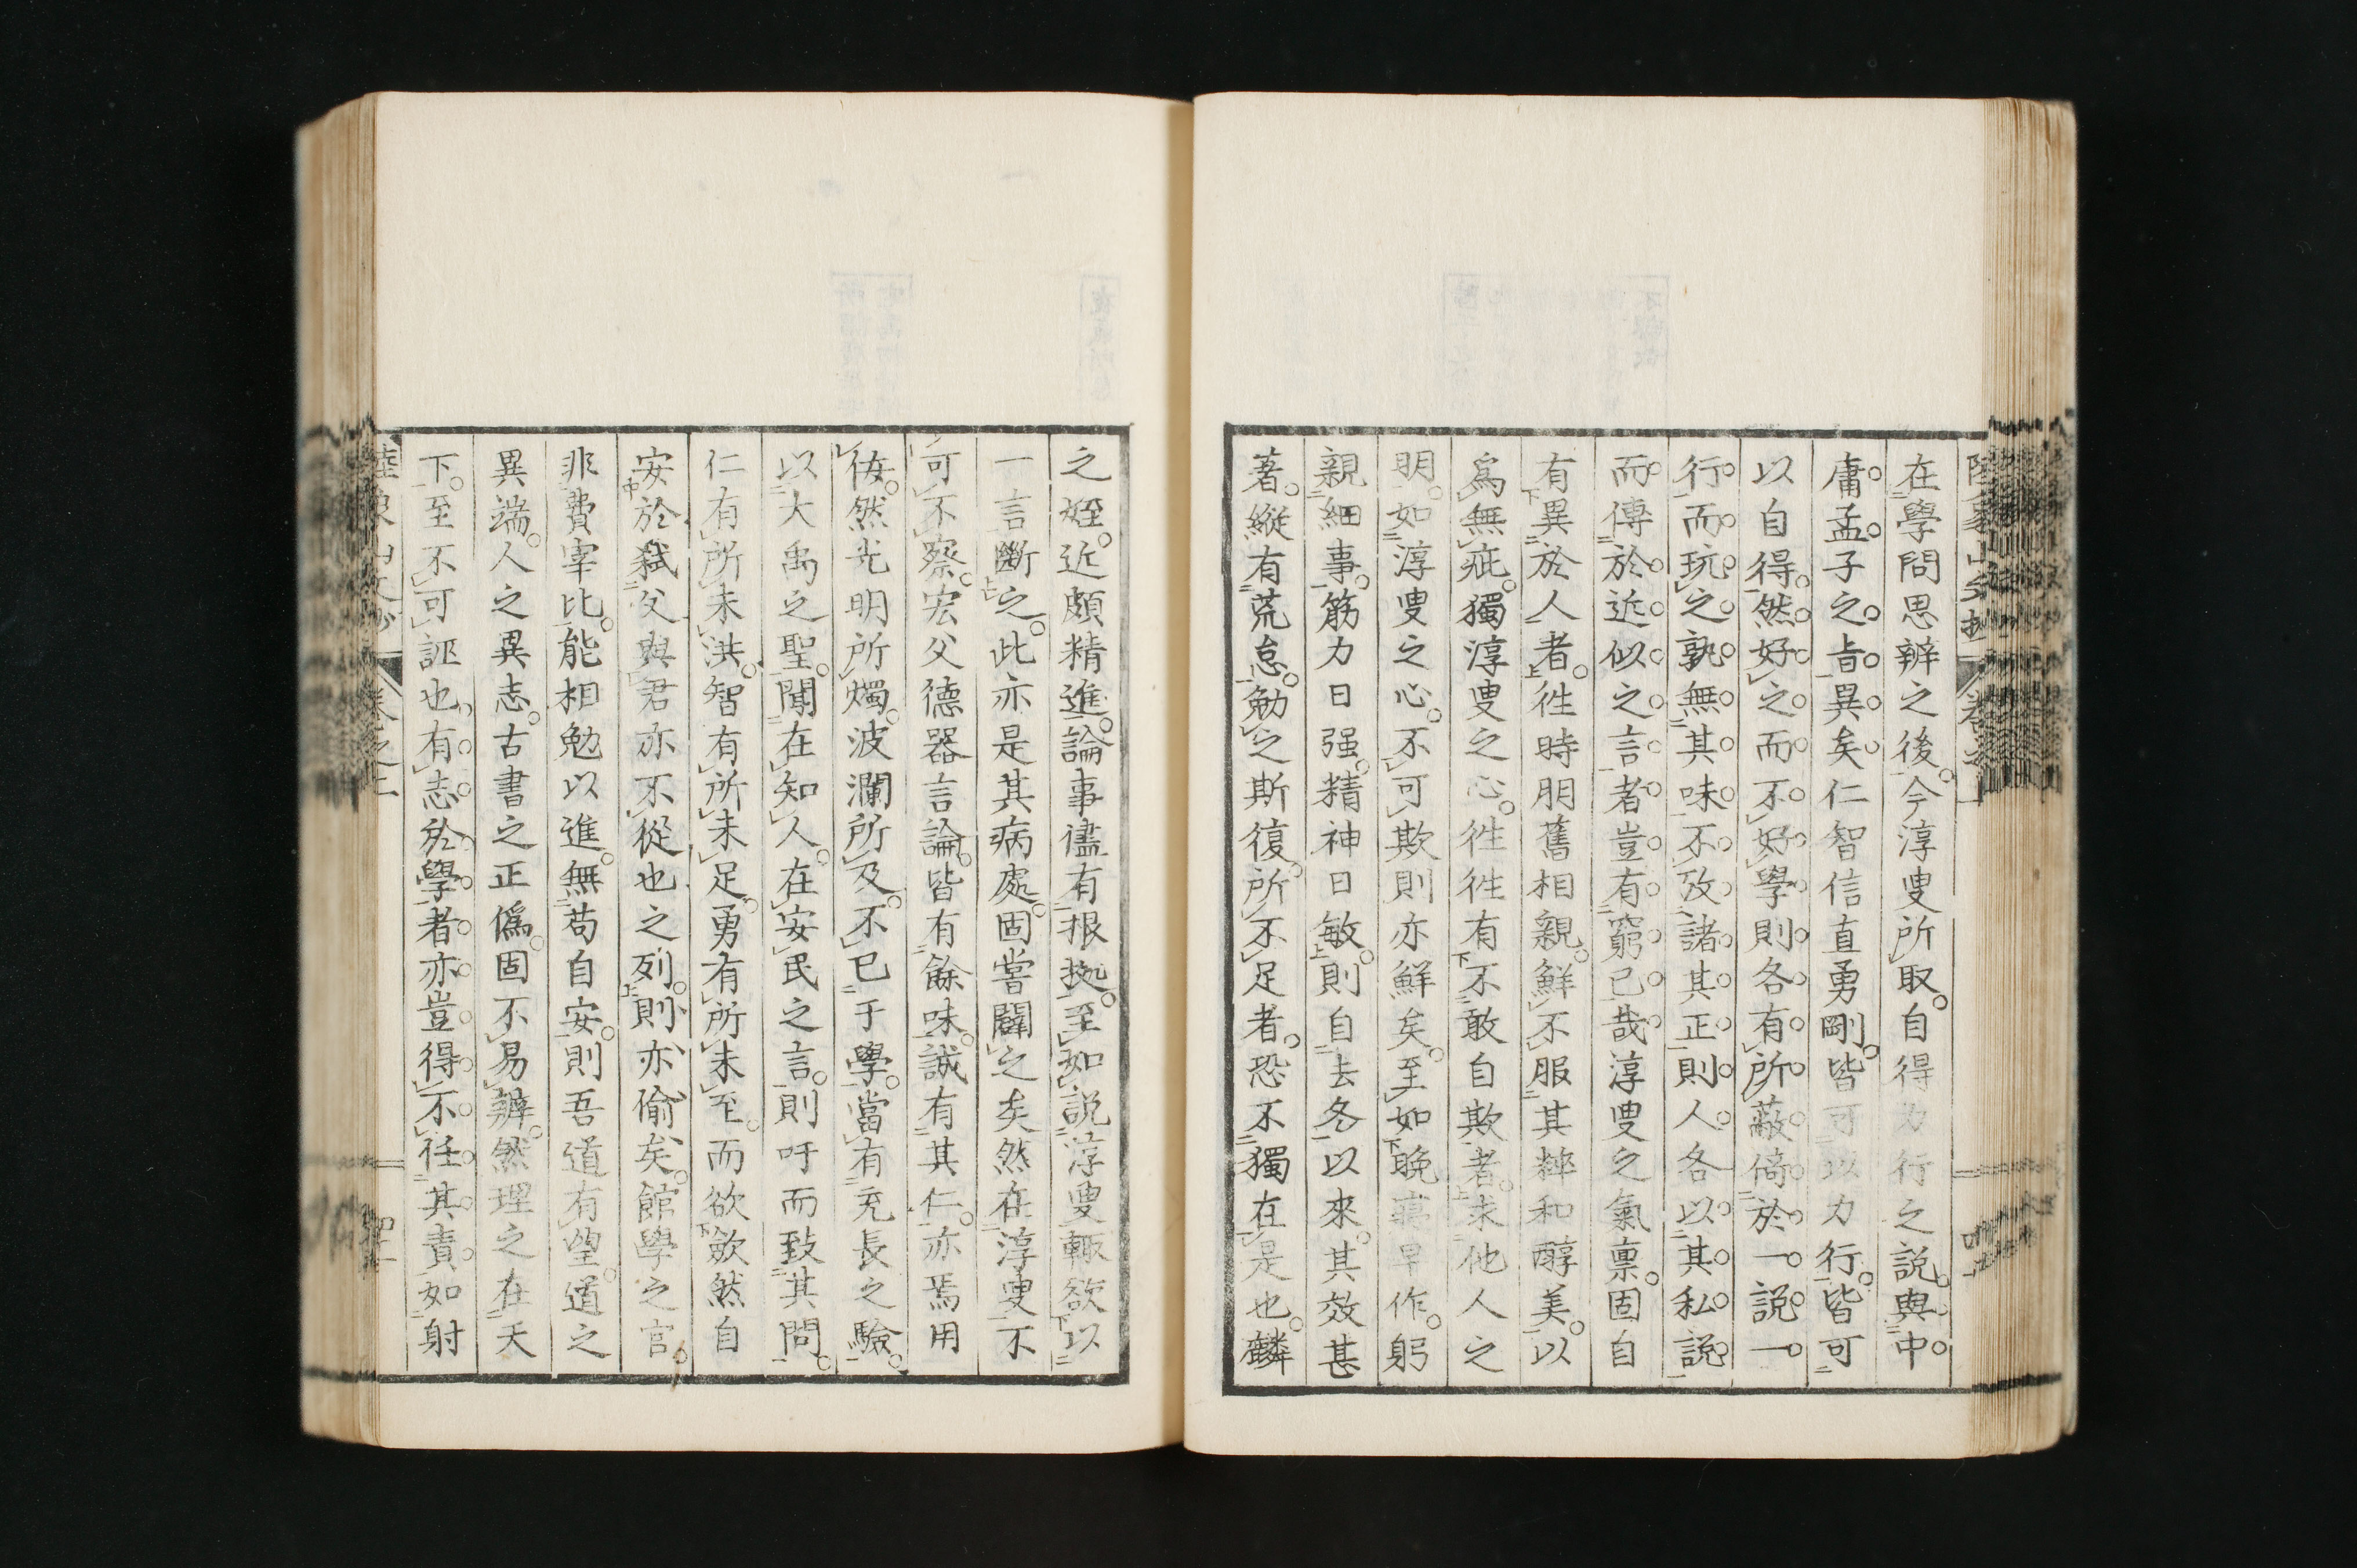 在學問思辨之後今淳叟所取自得力行之説與中
庸孟子之旨異矣仁智信直勇剛皆可以力行皆可
以自得然好之而不好學則各有所蔽倚於一説一
行而玩之孰無其味不攷諸其正則人各以其私説
而傅於近似之言者豈有窮已哉淳叟之氣禀固自
有異於人者徃時朋舊相親鮮不服其粹和醇美以
爲無疵獨淳叟之心徃徃有不敢自欺者求他人之
明如淳叟之心不可欺則亦鮮矣至如晩寢早作躬
親細事筋力日强精神日敏則自去冬以來其效甚
著縱有荒怠勉之斯復所不足者恐不獨在是也麟
之姪近頗精進論事儘有根㨿至如説淳叟輒欲以
一言斷之此亦是其病處固嘗闢之矣然在淳叟不
可不察宏父德器言論皆有餘味誠有其仁亦焉用
侫然光明所燭波瀾所及不已于學當有充長之驗
以大禹之聖聞在知人在安民之言則吁而致其問
仁有所未洪智有所未足勇有所未至而欲歛然自
安於弑父與君亦不從也之列則亦偷矣館學之官
非費宰比能相勉以進無苟自安則吾道有望道之
異端人之異志古書之正僞固不易辨然理之在天
下至不可誣也有志於學者亦豈得不任其責如射